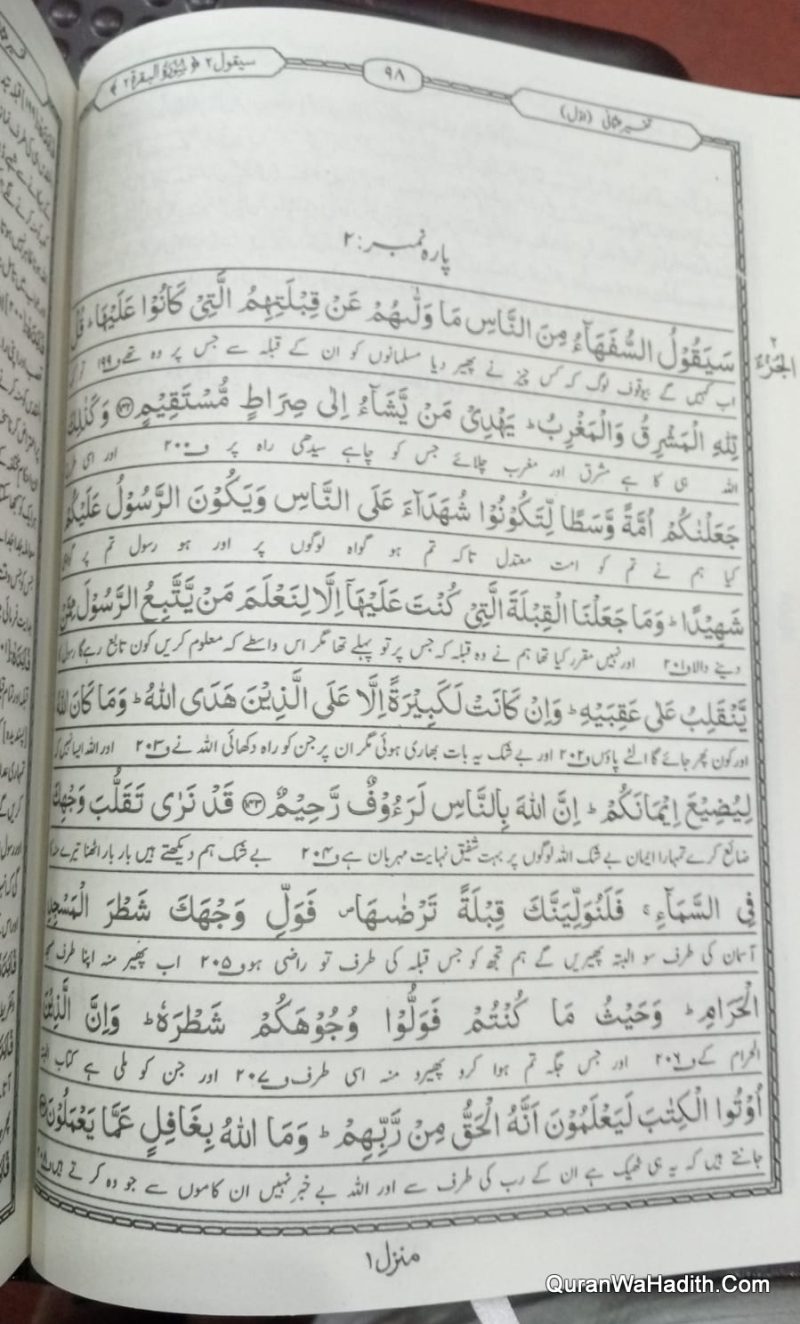 سیقول ۲ ﴿ سورۃ البقرۃ ۲ ﴾
۹۸
تفسیر عثمانی (اوّل)
پارہ نمبر: ۲
الجزء ۲
سَيَقُوْلُ السُّفَهَآءُ مِنَ النَّاسِ مَا وَلّٰىهُمْ عَنْ قِبْلَتِهِمُ الَّتِىْ كَانُوْا عَلَيْهَا ؕ قُلْ
اب کہیں گے بیوقوف لوگ کہ کس چیز نے پھیر دیا مسلمانوں کو ان کے قبلہ سے جس پر وہ تھے ف۱۹۹ تو کہہ
لِّلّٰهِ الْمَشْرِقُ وَالْمَغْرِبُ ؕ يَهْدِىْ مَنْ يَّشَآءُ اِلٰى صِرَاطٍ مُّسْتَقِيْمٍ ﴿۱۴۲﴾ وَكَذٰلِكَ
اللہ ہی کا ہے مشرق اور مغرب چلائے جس کو چاہے سیدھی راہ پر ف۲۰۰ اور اسی طرح
جَعَلْنٰكُمْ اُمَّةً وَّسَطًا لِّتَكُوْنُوْا شُهَدَآءَ عَلَى النَّاسِ وَيَكُوْنَ الرَّسُوْلُ عَلَيْكُمْ
کیا ہم نے تم کو امت معتدل تاکہ تم ہو گواہ لوگوں پر اور ہو رسول تم پر گواہی
شَهِيْدًا ؕ وَمَا جَعَلْنَا الْقِبْلَةَ الَّتِىْ كُنْتَ عَلَيْهَآ اِلَّا لِنَعْلَمَ مَنْ يَّتَّبِعُ الرَّسُوْلَ مِمَّنْ
دینے والا ف۲۰۱ اور نہیں مقرر کیا تھا ہم نے وہ قبلہ کہ جس پر تو پہلے تھا مگر اس واسطے کہ معلوم کریں کون تابع رہے گا رسول کا
يَّنْقَلِبُ عَلٰى عَقِبَيْهِ ؕ وَاِنْ كَانَتْ لَكَبِيْرَةً اِلَّا عَلَى الَّذِيْنَ هَدَى اللّٰهُ ؕ وَمَا كَانَ اللّٰهُ
اور کون پھر جائے گا الٹے پاؤں ف۲۰۲ اور بے شک یہ بات بھاری ہوئی مگر ان پر جن کو راہ دکھائی اللہ نے ف۲۰۳ اور اللہ ایسا نہیں کہ
لِيُضِيْعَ اِيْمَانَكُمْ ؕ اِنَّ اللّٰهَ بِالنَّاسِ لَرَءُوْفٌ رَّحِيْمٌ ﴿۱۴۳﴾ قَدْ نَرٰى تَقَلُّبَ وَجْهِكَ
ضائع کرے تمہارا ایمان بے شک اللہ لوگوں پر بہت شفیق نہایت مہربان ہے ف۲۰۴ بے شک ہم دیکھتے ہیں بار بار اٹھنا تیرے منہ کا
فِى السَّمَآءِ ۚ فَلَنُوَلِّيَنَّكَ قِبْلَةً تَرْضٰىهَا ۪ فَوَلِّ وَجْهَكَ شَطْرَ الْمَسْجِدِ
آسمان کی طرف سو البتہ پھیریں گے ہم تجھ کو جس قبلہ کی طرف تو راضی ہو ف۲۰۵ اب پھیر منہ اپنا طرف مسجد
الْحَرَامِ ؕ وَحَيْثُ مَا كُنْتُمْ فَوَلُّوْا وُجُوْهَكُمْ شَطْرَهٗ ؕ وَاِنَّ الَّذِيْنَ
الحرام کے ف۲۰۶ اور جس جگہ تم ہوا کرو پھیرو منہ اسی طرف ف۲۰۷ اور جن کو ملی ہے کتاب البتہ
اُوْتُوا الْكِتٰبَ لَيَعْلَمُوْنَ اَنَّهُ الْحَقُّ مِنْ رَّبِّهِمْ ؕ وَمَا اللّٰهُ بِغَافِلٍ عَمَّا يَعْمَلُوْنَ ﴿۱۴۴﴾
جانتے ہیں کہ یہ ہی ٹھیک ہے ان کے رب کی طرف سے اور اللہ بے خبر نہیں ان کاموں سے جو وہ کرتے ہیں ف۲۰۸
منزل ۱
QuranWaHadith.Com